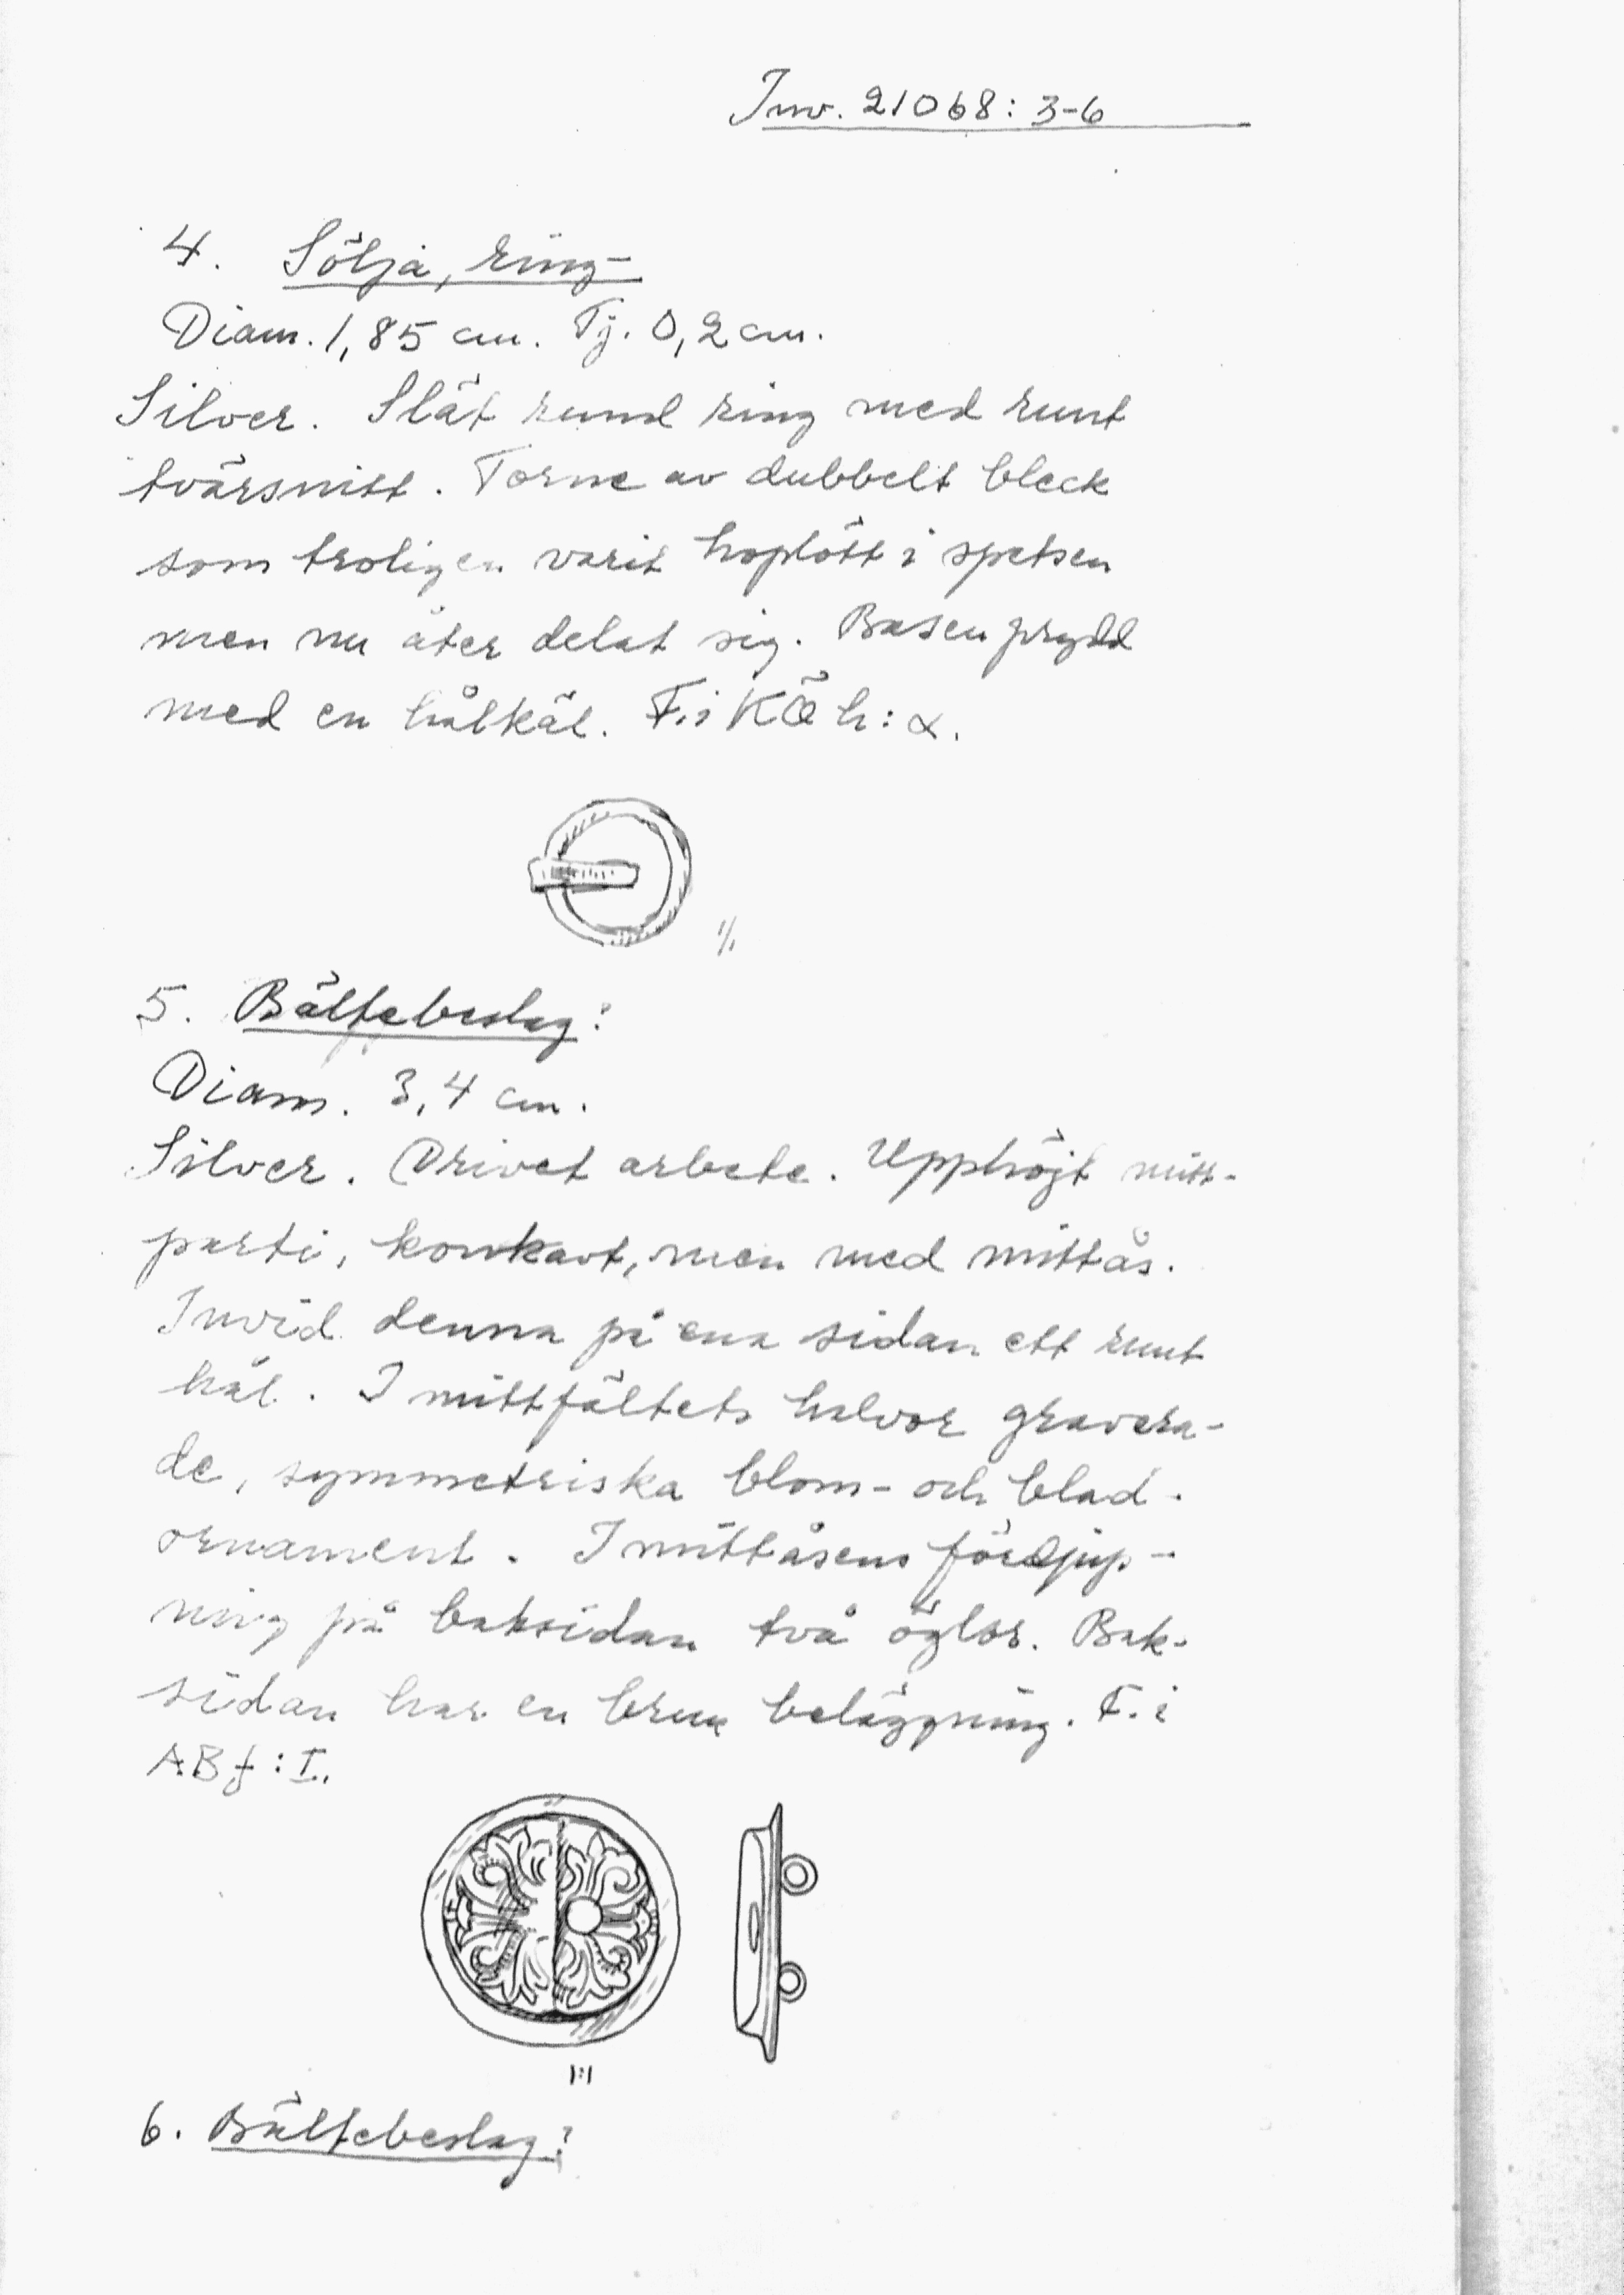 Inv. 21068: 3-6
4. Sölja, ring-
Diam. 1,85 cm. Tj. 0,2 cm.
Silver. Slät rund ring med runt
tvärsnitt. Torne av dubbelt bleck
som troligen varit hoplött i spetsen
men nu åter delat sig. Basen prydd
med en hålkäl. F. i KÖ h: α.
1/1
5. Bältebeslag?
Diam. 3,4 cm.
Silver. Drivet arbete. Upphöjt mitt-
parti, konkavt, men med mittås.
Invid denna på ena sidan ett runt
hål. I mittfältets halvor gravera-
de, symmetriska blom- och blad-
ornament. I mittåsens fördjup-
ning på baksidan två öglor. Bak-
sidan har en brun beläggning. F. i
ABf: I.
1:1
6. Bältebeslag?